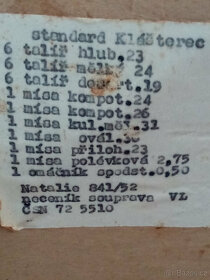 standard Klášterec
6 talíř hlub.23
6 talíř mělký 24
6 talíř desert.19
1 mísa kompot.24
1 mísa kompot.26
1 mísa kul.měl.31
1 mísa ovál.36
1 mísa příloh.23
1 mísa polévková 2,75
1 omáčník spodst.0,50
Natalie 841/52
neceník souprava VL
ČSN 72 5510